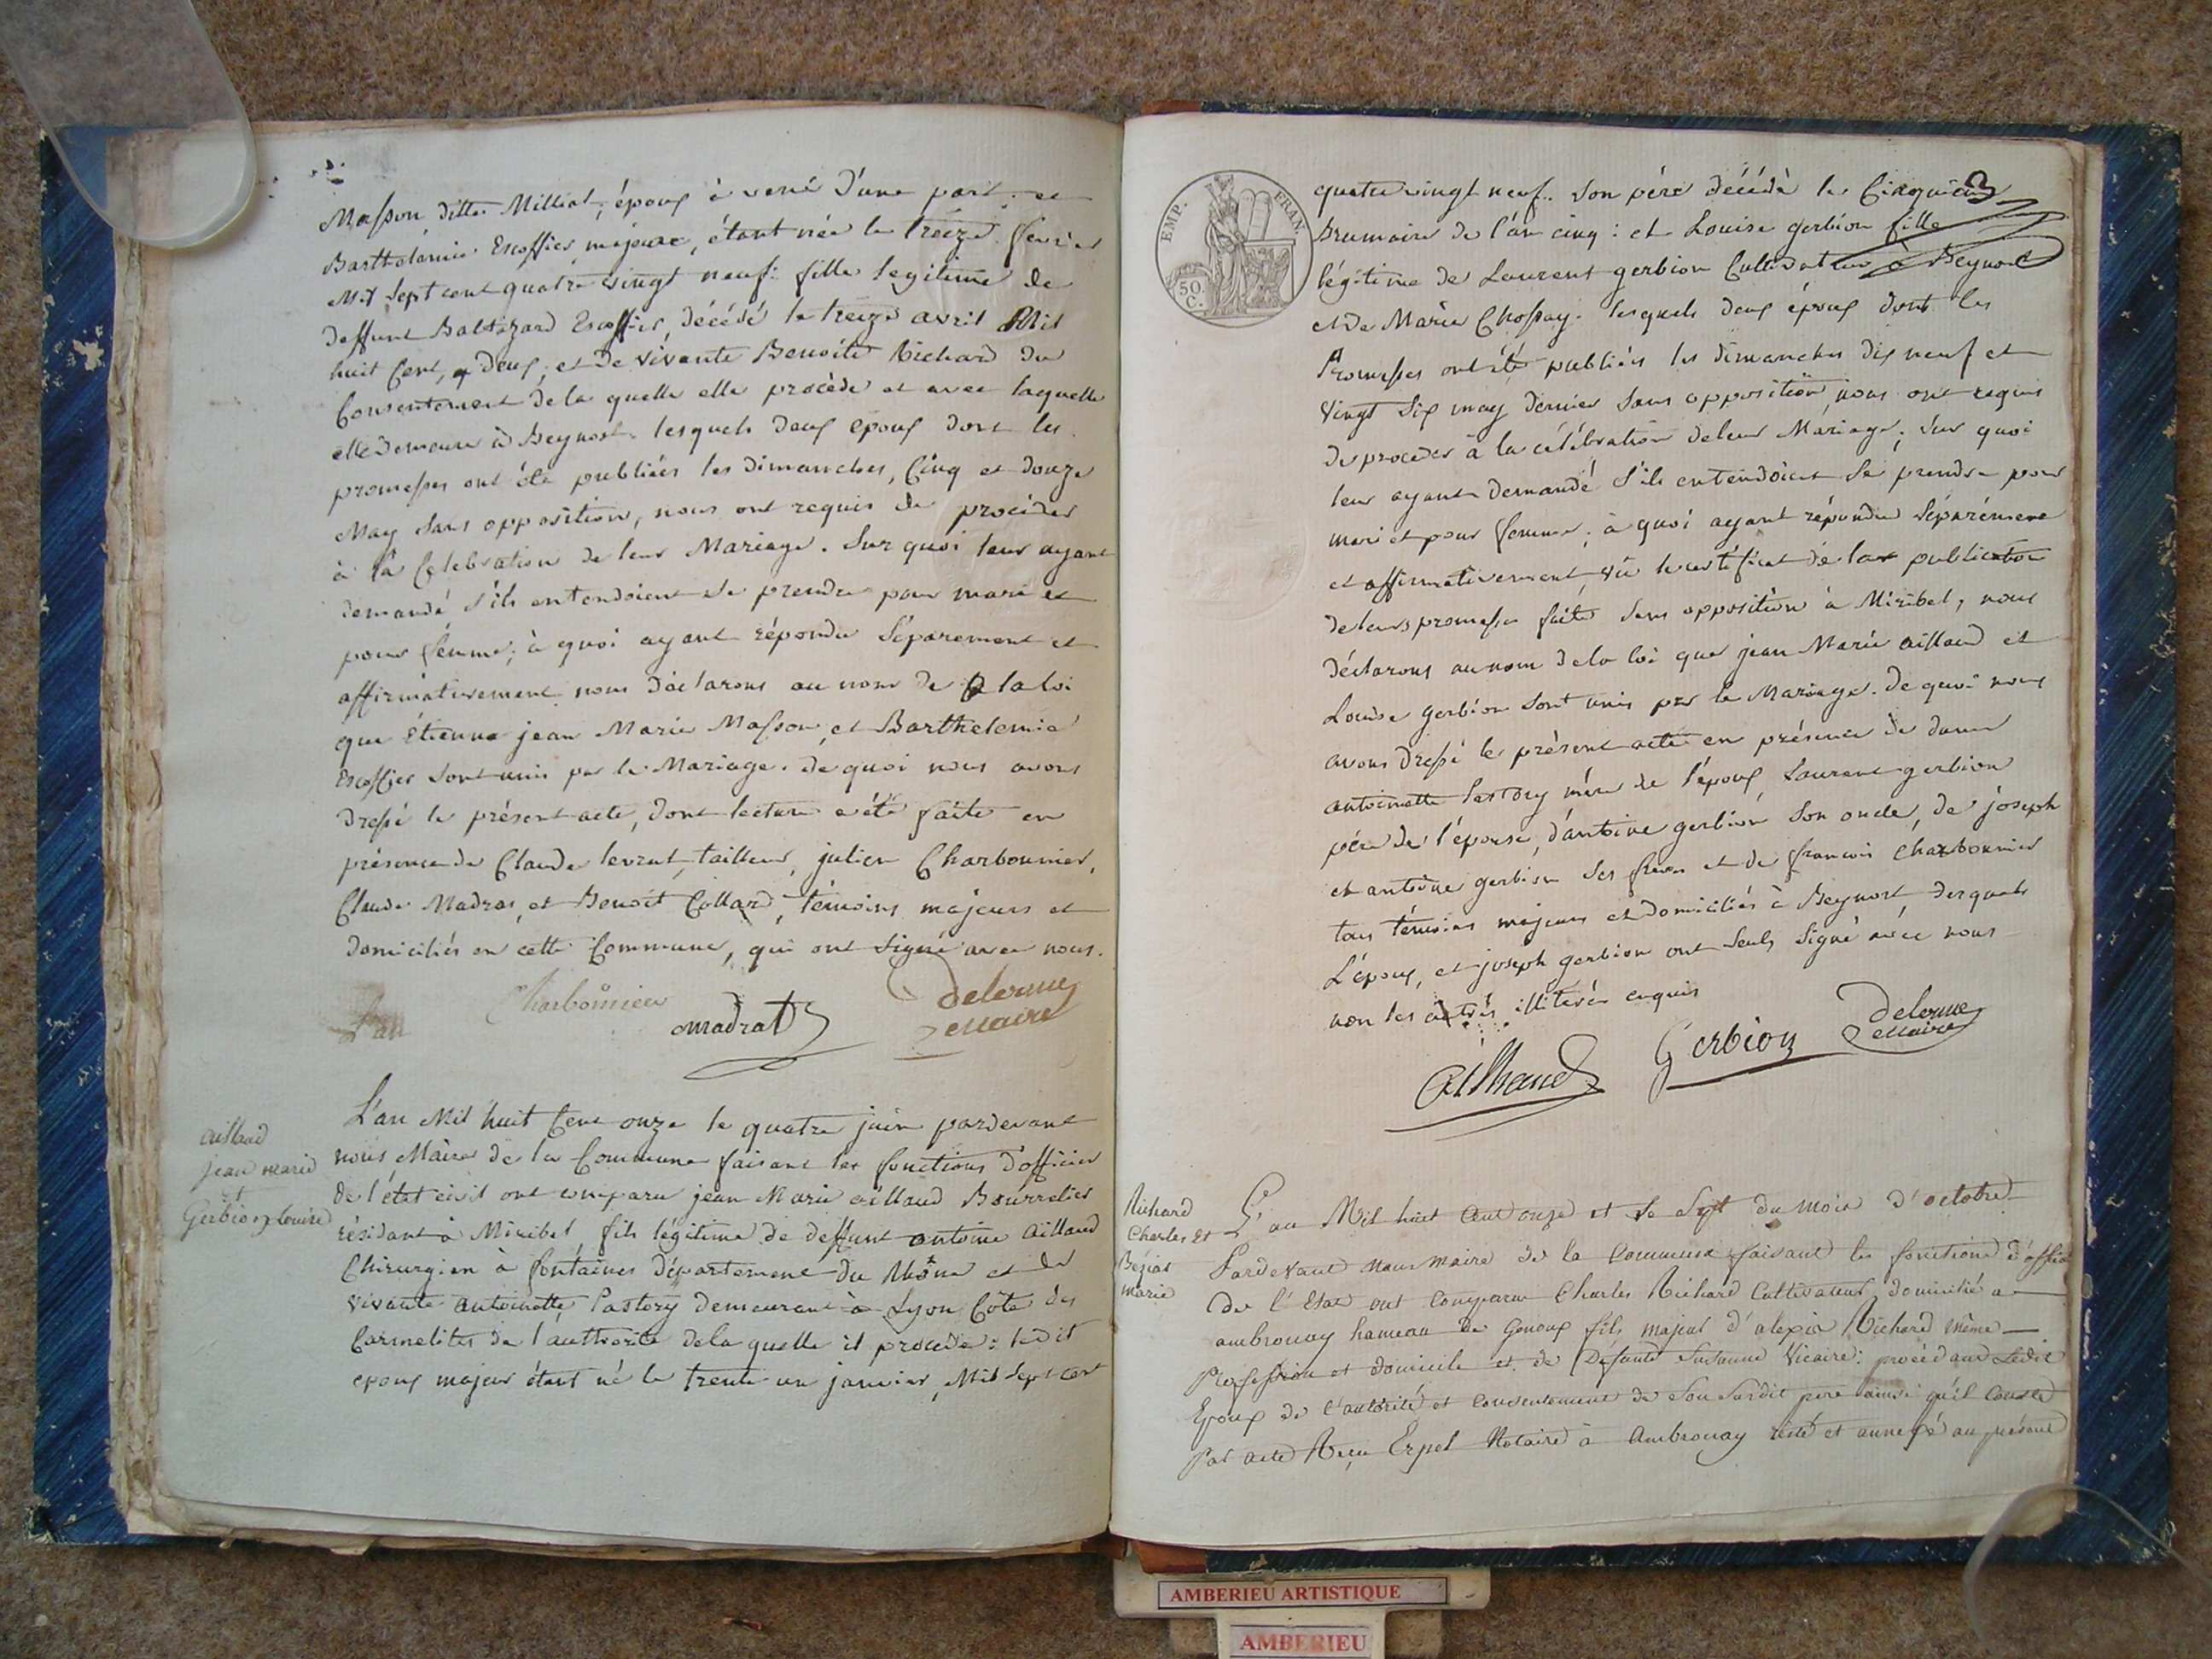 Masson ditte Milliat, époux à venir d'une part; et
Barthelemie Escoffier, majeure, étant née le treize fevrier
Mil sept cent quatre vingt neuf: fille legitime de
deffunt Baltazard Escoffier, décédé le treize avril Mil
huit Cent, deux, et de vivante Benoite Richard du
Consentement de la quelle elle procède et avec laquelle
elle demeure à Beynost. lesquels deux epoux dont les
promesses ont été publiées les dimanches, Cinq et douze
May sans opposition, nous ont requis de procéder
à la Celebration de leur Mariage. Sur quoi leur ayant
demandé s'ils entendoient se prendre pour mari et
pour femme; à quoi ayant répondu Séparement et
affirmativement nous déclarons au nom de la loi
que Étienne jean Marie Masson, et Barthelemie
Escoffier sont unis par le Mariage. de quoi nous avons
dressé le présent acte, dont lecture a été faite en
présence de Claude levrat, tailleur, julien Charbonnier,
Claude Madras, et Benoit Collard, témoins majeurs et
domiciliés en cette Commune, qui ont Signé avec nous.
L'an Charbonnier madrat delorme maire
aillaud
jean marie
et
Gerbion louise
L'an Mil huit Cent onze le quatre juin pardevant
nous Maire de la Commune faisant les fonctions d'officier
de l'état civil ont comparu jean Marie aillaud Bourrelier
résidant à Miribel, fils légitime de deffunt antoine aillaud
Chirurgien à fontaines département du Rhône et de
vivante antoinette Pastory demeurant à Lyon Côte des
Carmelites de l'authorité de la quelle il procède: ledit
epoux majeur étant né le trente un janvier, Mil Sept cent
EMP. FRAN.
50 C.
quatre vingt neuf. Son père décédé le Cinquième
Brumaire de l'an cinq: et Louise gerbion fille
légitime de Laurent gerbion Cultivateur à Beynost
et de Marie Chossay. lesquels deux époux dont les
Promesses ont été publiées les dimanches dix neuf et
vingt six may dernier sans opposition, nous ont requis
de proceder à la célébration de leur Mariage; Sur quoi
leur ayant demandé s'ils entendoient se prendre pour
mari et pour femme; à quoi ayant répondu Séparément
et affirmativement, vû le certificat de la publication
de leurs promesses faite sans opposition à Miribel, nous
déclarons au nom de la loi que jean Marie aillaud et
Louise gerbion sont unis par le Mariage. de quoi nous
avons dressé le présent acte en présence de dame
antoinette Pastory mère de l'époux, Laurent gerbion
père de l'épouse, d'antoine gerbion son oncle, de joseph
et antoine gerbion ses freres et de françois Charbonnier
tous témoins majeurs et domiciliés à Beynost, desquels
L'époux, et joseph gerbion ont Seuls Signé avec nous
non les autres illiterés enquis
Aillaud Gerbion delorme maire
Richard
Charles et
Béjat
marie
L'an Mil huit Cent onze et le Sept du mois d'octobre
Pardevant nous maire de la Commune faisant les fonctions d'officier
de l'Etat ont Comparu Charles Richard Cultivateur, domicilié a
ambronay hameau de Genoux fils majeur d'alexis Richard même
Profession et domicile et de Defunte Susanne Vicaire: procédant Ledit
Epoux de l'autorité et Consentement de Son Susdit pere ainsi qu'il Conste
Par acte Reçu Erpel Notaire à Ambronay resté et annexé au présent
AMBERIEU ARTISTIQUE
AMBERIEU